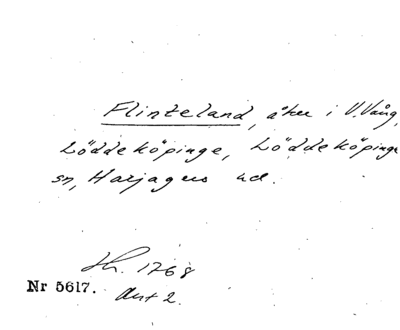 Flinteland, åker i V. Vång,
Löddeköpinge, Löddeköpinge
sn, Harjagers hd.
1768
Nr 5617. Akt 2.